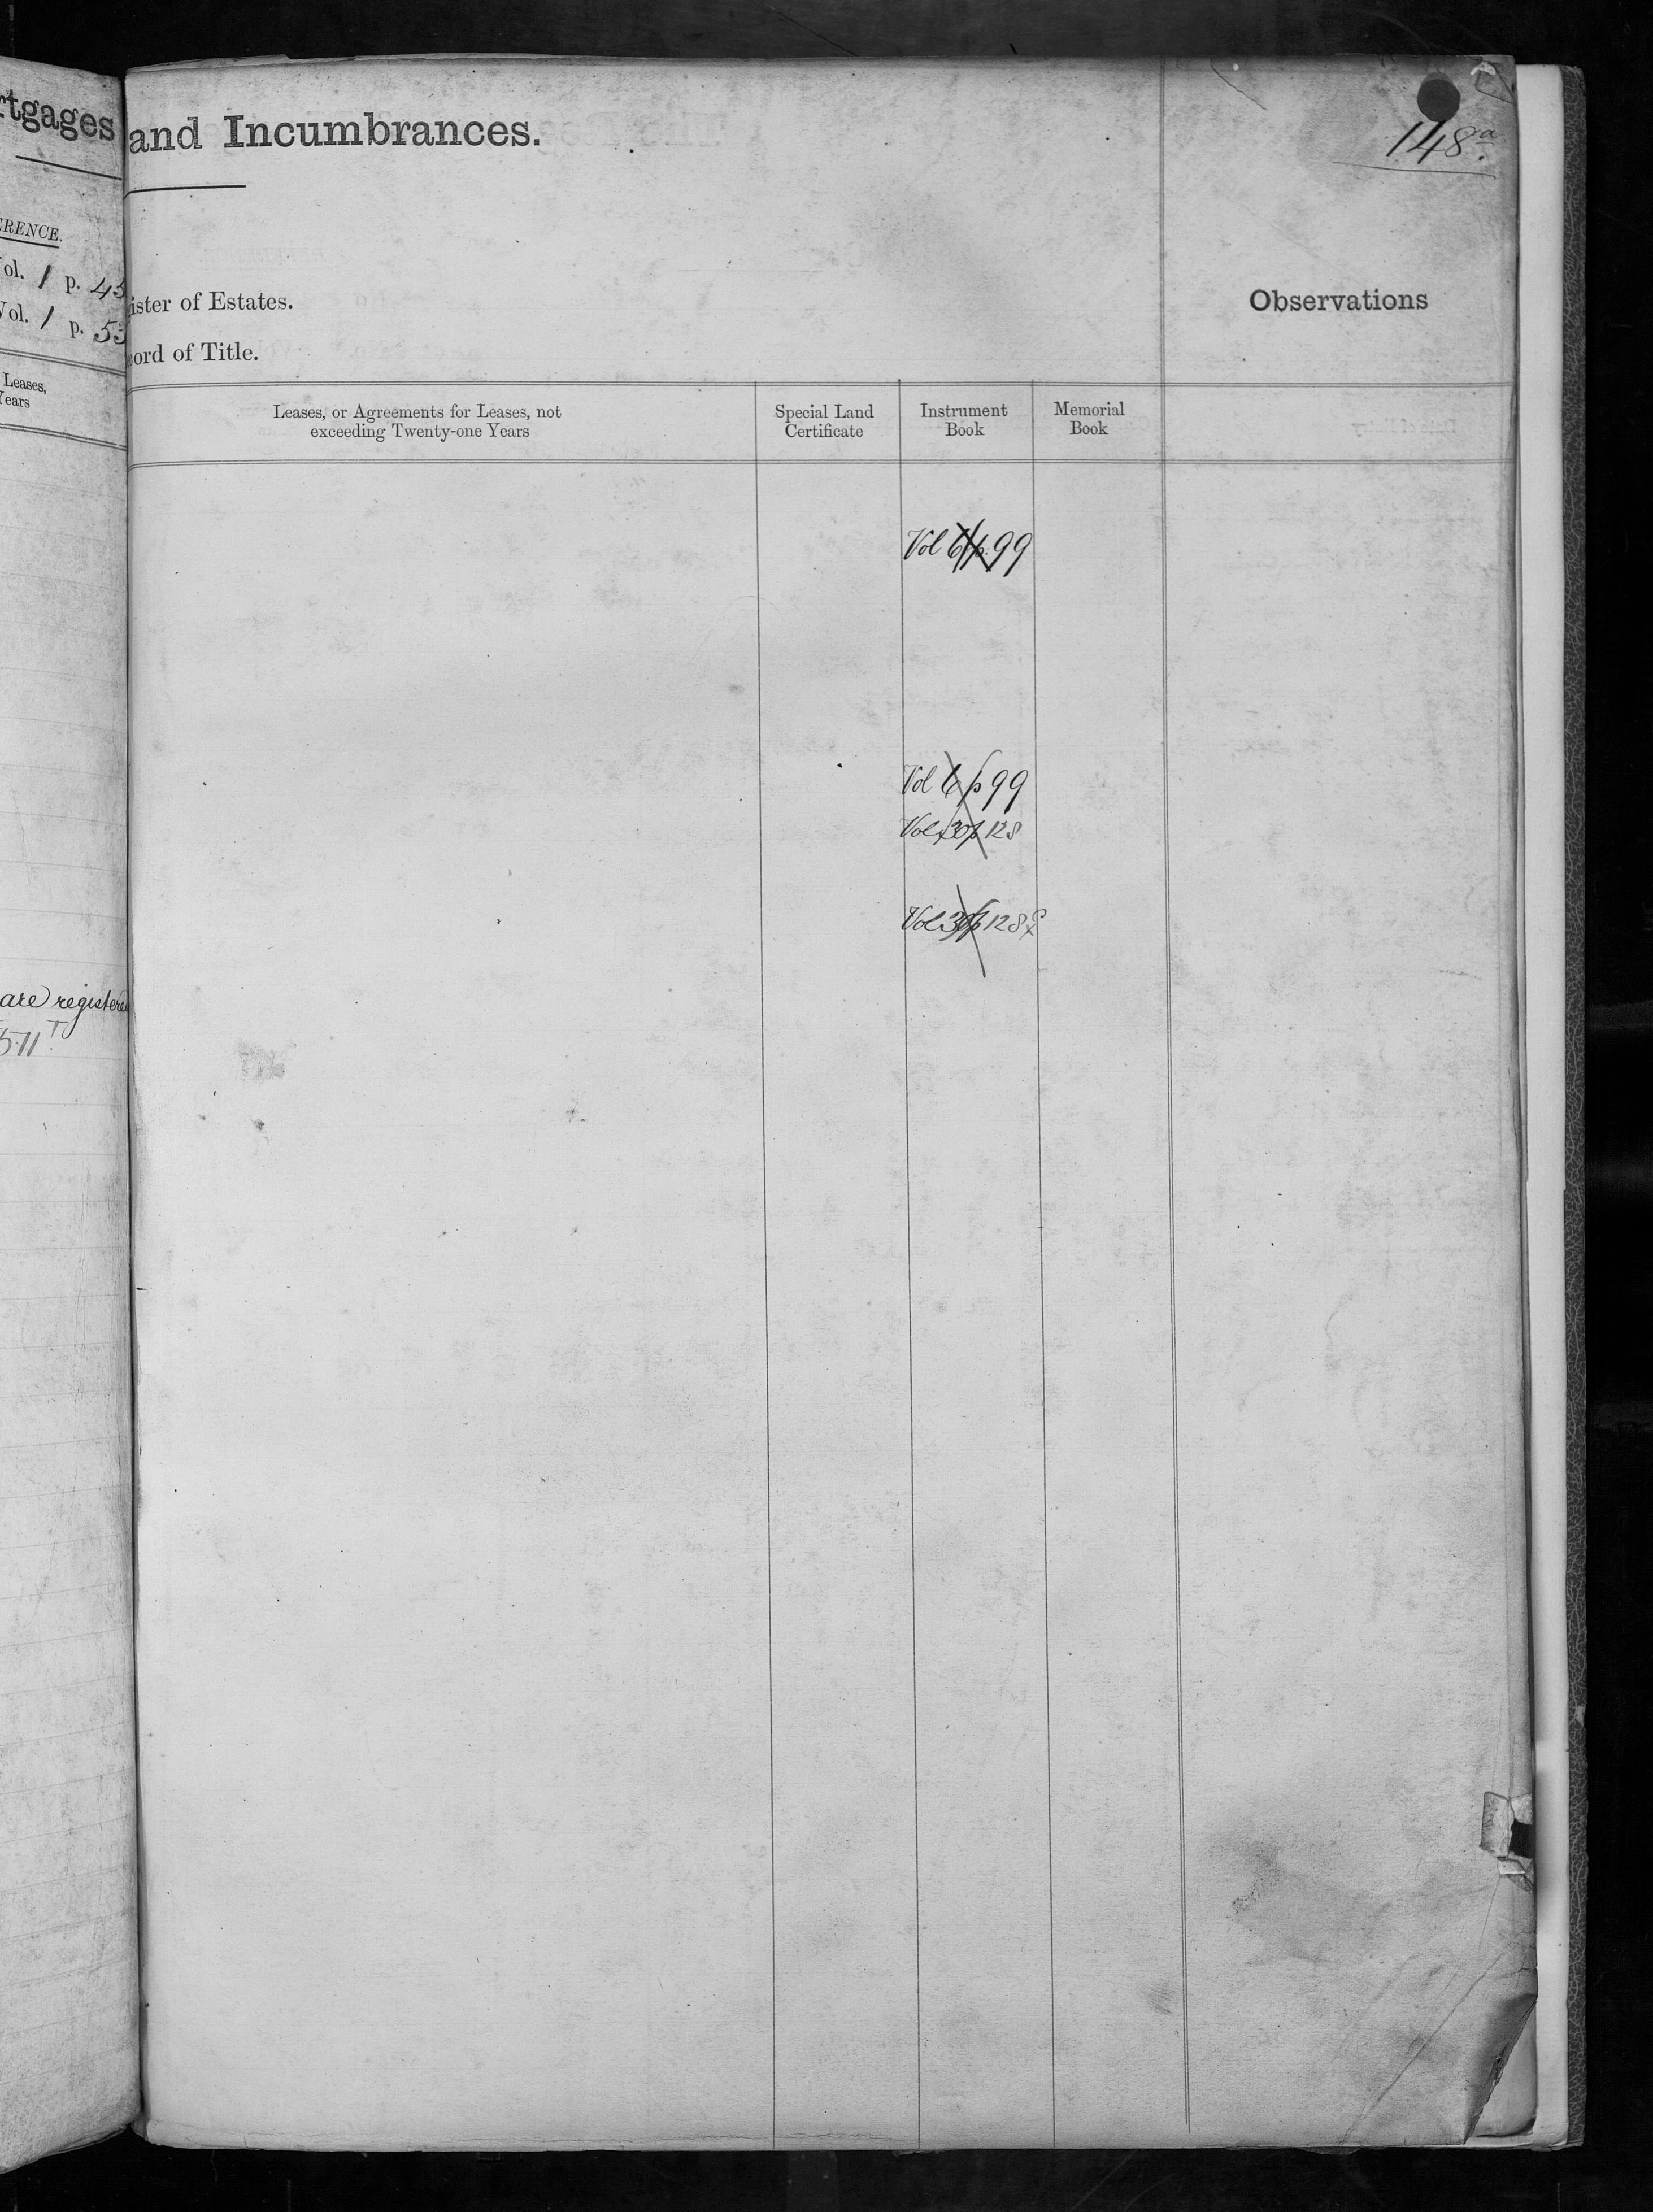 148a.
rtgages and Incumbrances.
ERENCE.
ol. 1 p. 45
ister of Estates.
Observations
Vol. 1 p. 53
ord of Title.
Leases,
Years
Leases, or Agreements for Leases, not
exceeding Twenty-one Years
Special Land
Certificate
Instrument
Book
Memorial
Book
Vol 6 p. 99
Vol 6 p 99
Vol 30 p 128
Vol 30 p 128
are registered
511 T